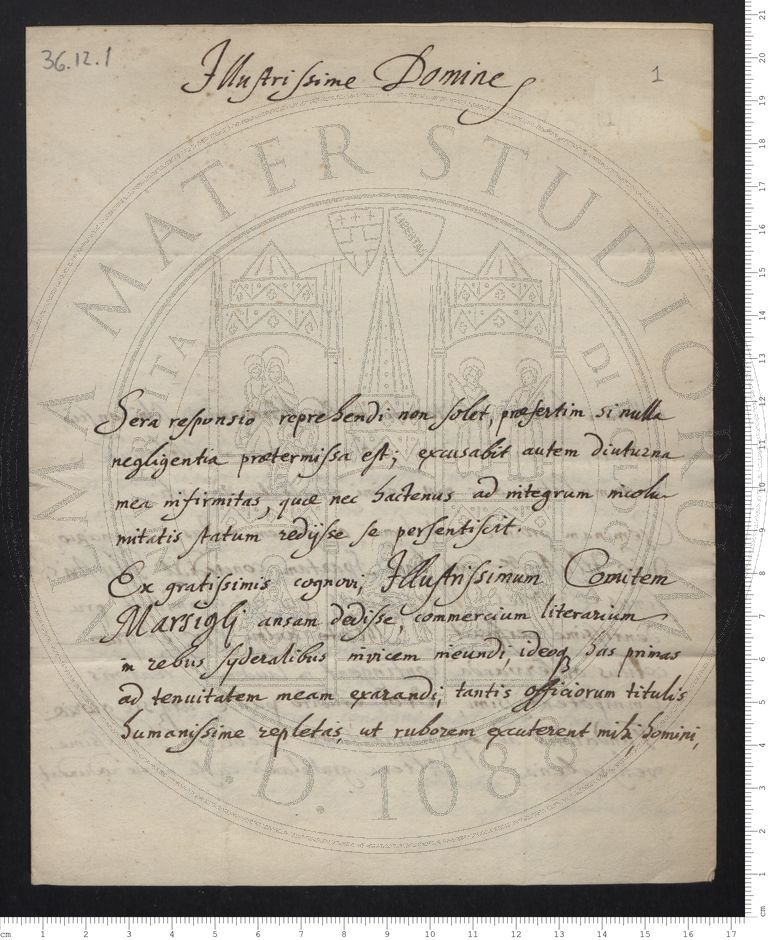 36.12.1
1
Illustrissime Domine
Sera responsio reprehendi non solet, præsertim si nulla
negligentia prætermissa est; excusabit autem diuturna
mea infirmitas, quæ nec hactenus ad integrum incolu-
mitatis statum redijsse se persentiscit.
Ex gratissimis cognovi, Illustrissimum Comitem
Marsigli ansam dedisse, commercium literarium
in rebus syderalibus invicem ineundi, ideoq, has primas
ad tenuitatem meam exarandi, tantis officiorum titulis
humanissime repletas, ut ruborem excuterent mihi, homini,
ALMA MATER STUDIORUM
A.D. 1088
LIBERTAS